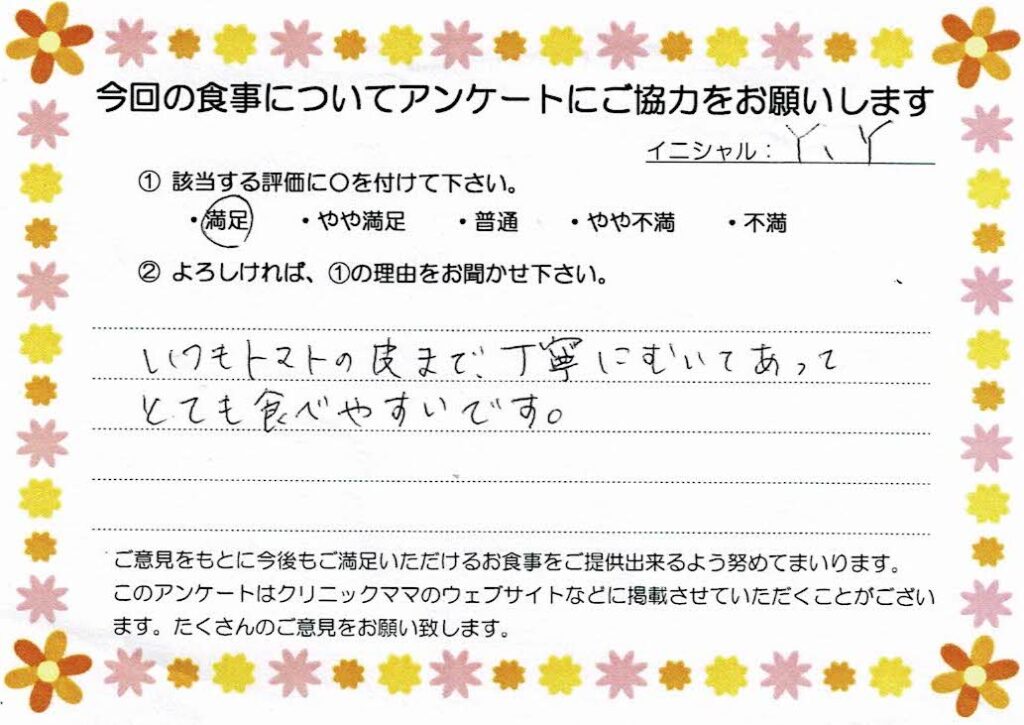 今回の食事についてアンケートにご協力をお願いします
イニシャル： Y、Y
① 該当する評価に〇を付けて下さい。
・満足 ・やや満足 ・普通 ・やや不満 ・不満
② よろしければ、①の理由をお聞かせ下さい。
いつもトマトの皮まで、丁寧にむいてあって
とても食べやすいです。
ご意見をもとに今後もご満足いただけるお食事をご提供出来るよう努めてまいります。
このアンケートはクリニックママのウェブサイトなどに掲載させていただくことがござい
ます。たくさんのご意見をお願い致します。